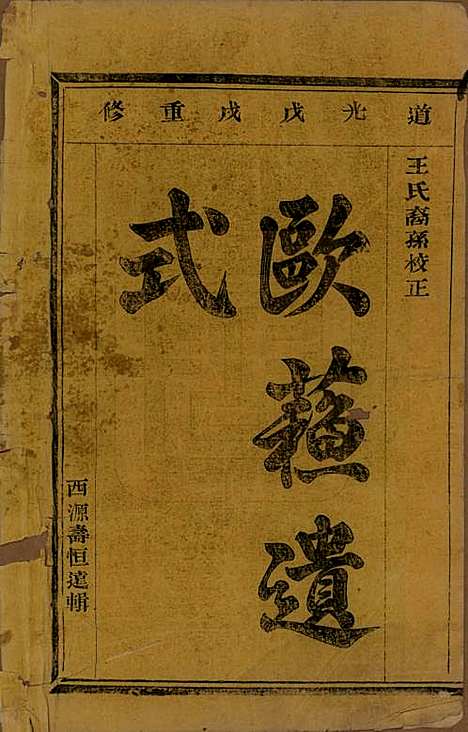 道光戊戌重修
王氏裔孫校正
歐蘓遺
式
西源壽恒遠輯